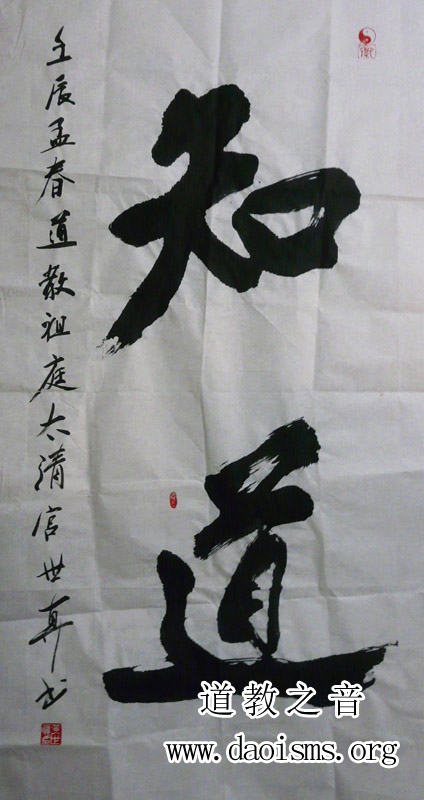 知道
壬辰孟春道教祖庭太清宫世真书
道教之音
www.daoisms.org